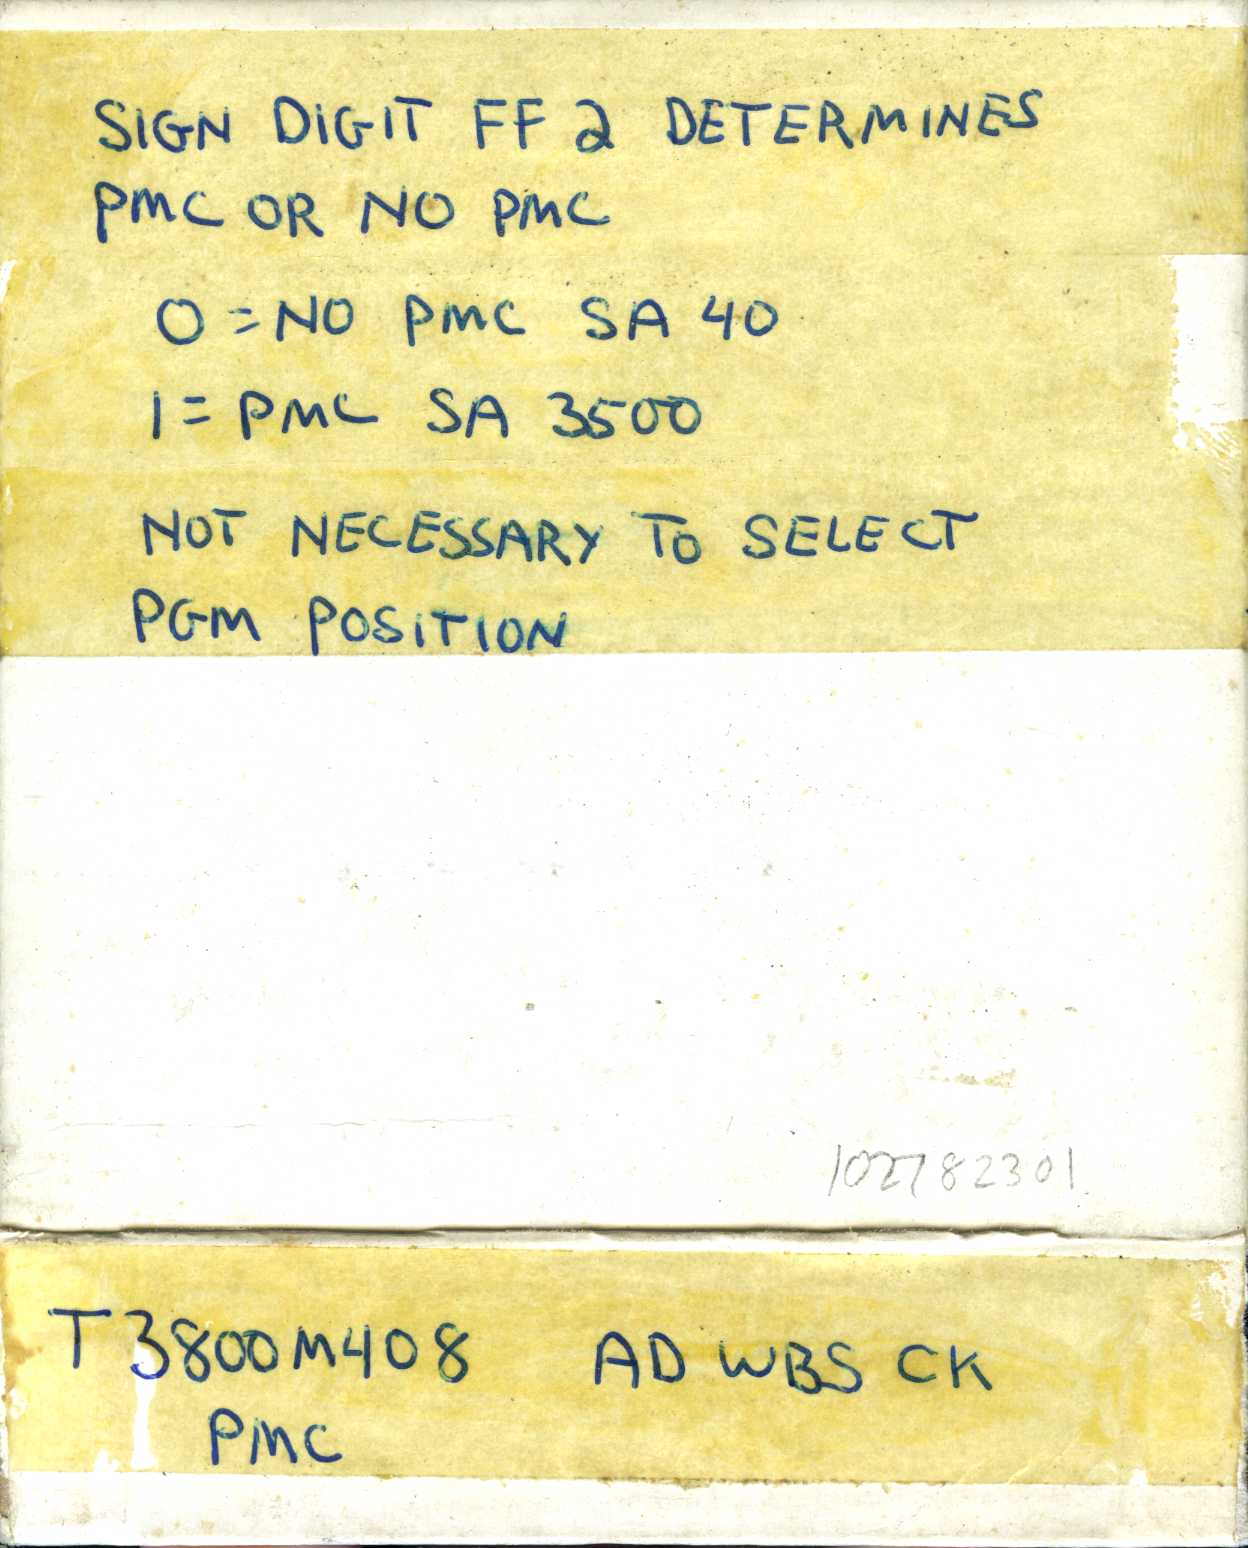 SIGN DIGIT FF 2 DETERMINES
PMC OR NO PMC
0 = NO PMC SA 40
1 = PMC SA 3500
NOT NECESSARY TO SELECT
PGM POSITION
102782301
T3800M408 AD WBS CK
PMC